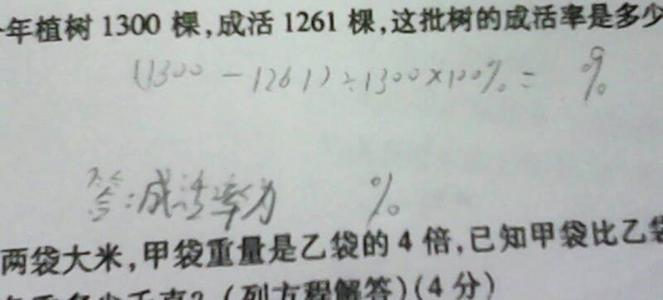 年植树 1300 棵,成活 1261 棵,这批树的成活率是多少
(1300-1261)÷1300×100%= %
答:成活率为 %
两袋大米,甲袋重量是乙袋的 4 倍,已知甲袋比乙袋
(列方程解答)(4 分)